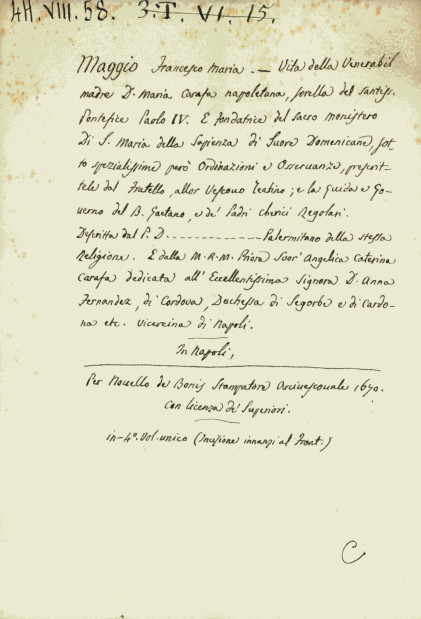 4H. VIII. 58. 3. T. VI. 15.
Maggio Francesco Maria. — Vita della Venerabil
madre D. Maria Carafa napoletana, sorella del santiss.
Pontefice Paolo IV. E fondatrice del sacro monistero
Di S. Maria della Sapienza di Suore Domenicane, sot-
to spezialissime però Ordinazioni e Osservanze, prescrit-
tele dal fratello, allor Vescovo Teatino; e la Guida e Go-
verno del B. Gaetano, e de' Padri cherici Regolari.
Descritta dal P. D. ------------ Palermitano della stessa
Religione. E dalla M. R. M. Priora Soor' Angelica Caterina
Carafa dedicata all' Eccellentissima Signora D. Anna
Fernandez, di Cordova, Duchessa di Segorbe e di Cardo-
na etc. Vicereina di Napoli.
In Napoli,
Per Novello de Bonis Stampatore Arcivescovale 1670.
Con licenza de' Superiori.
in-4°. Vol. unico (Incisione innanzi al Front.)
C